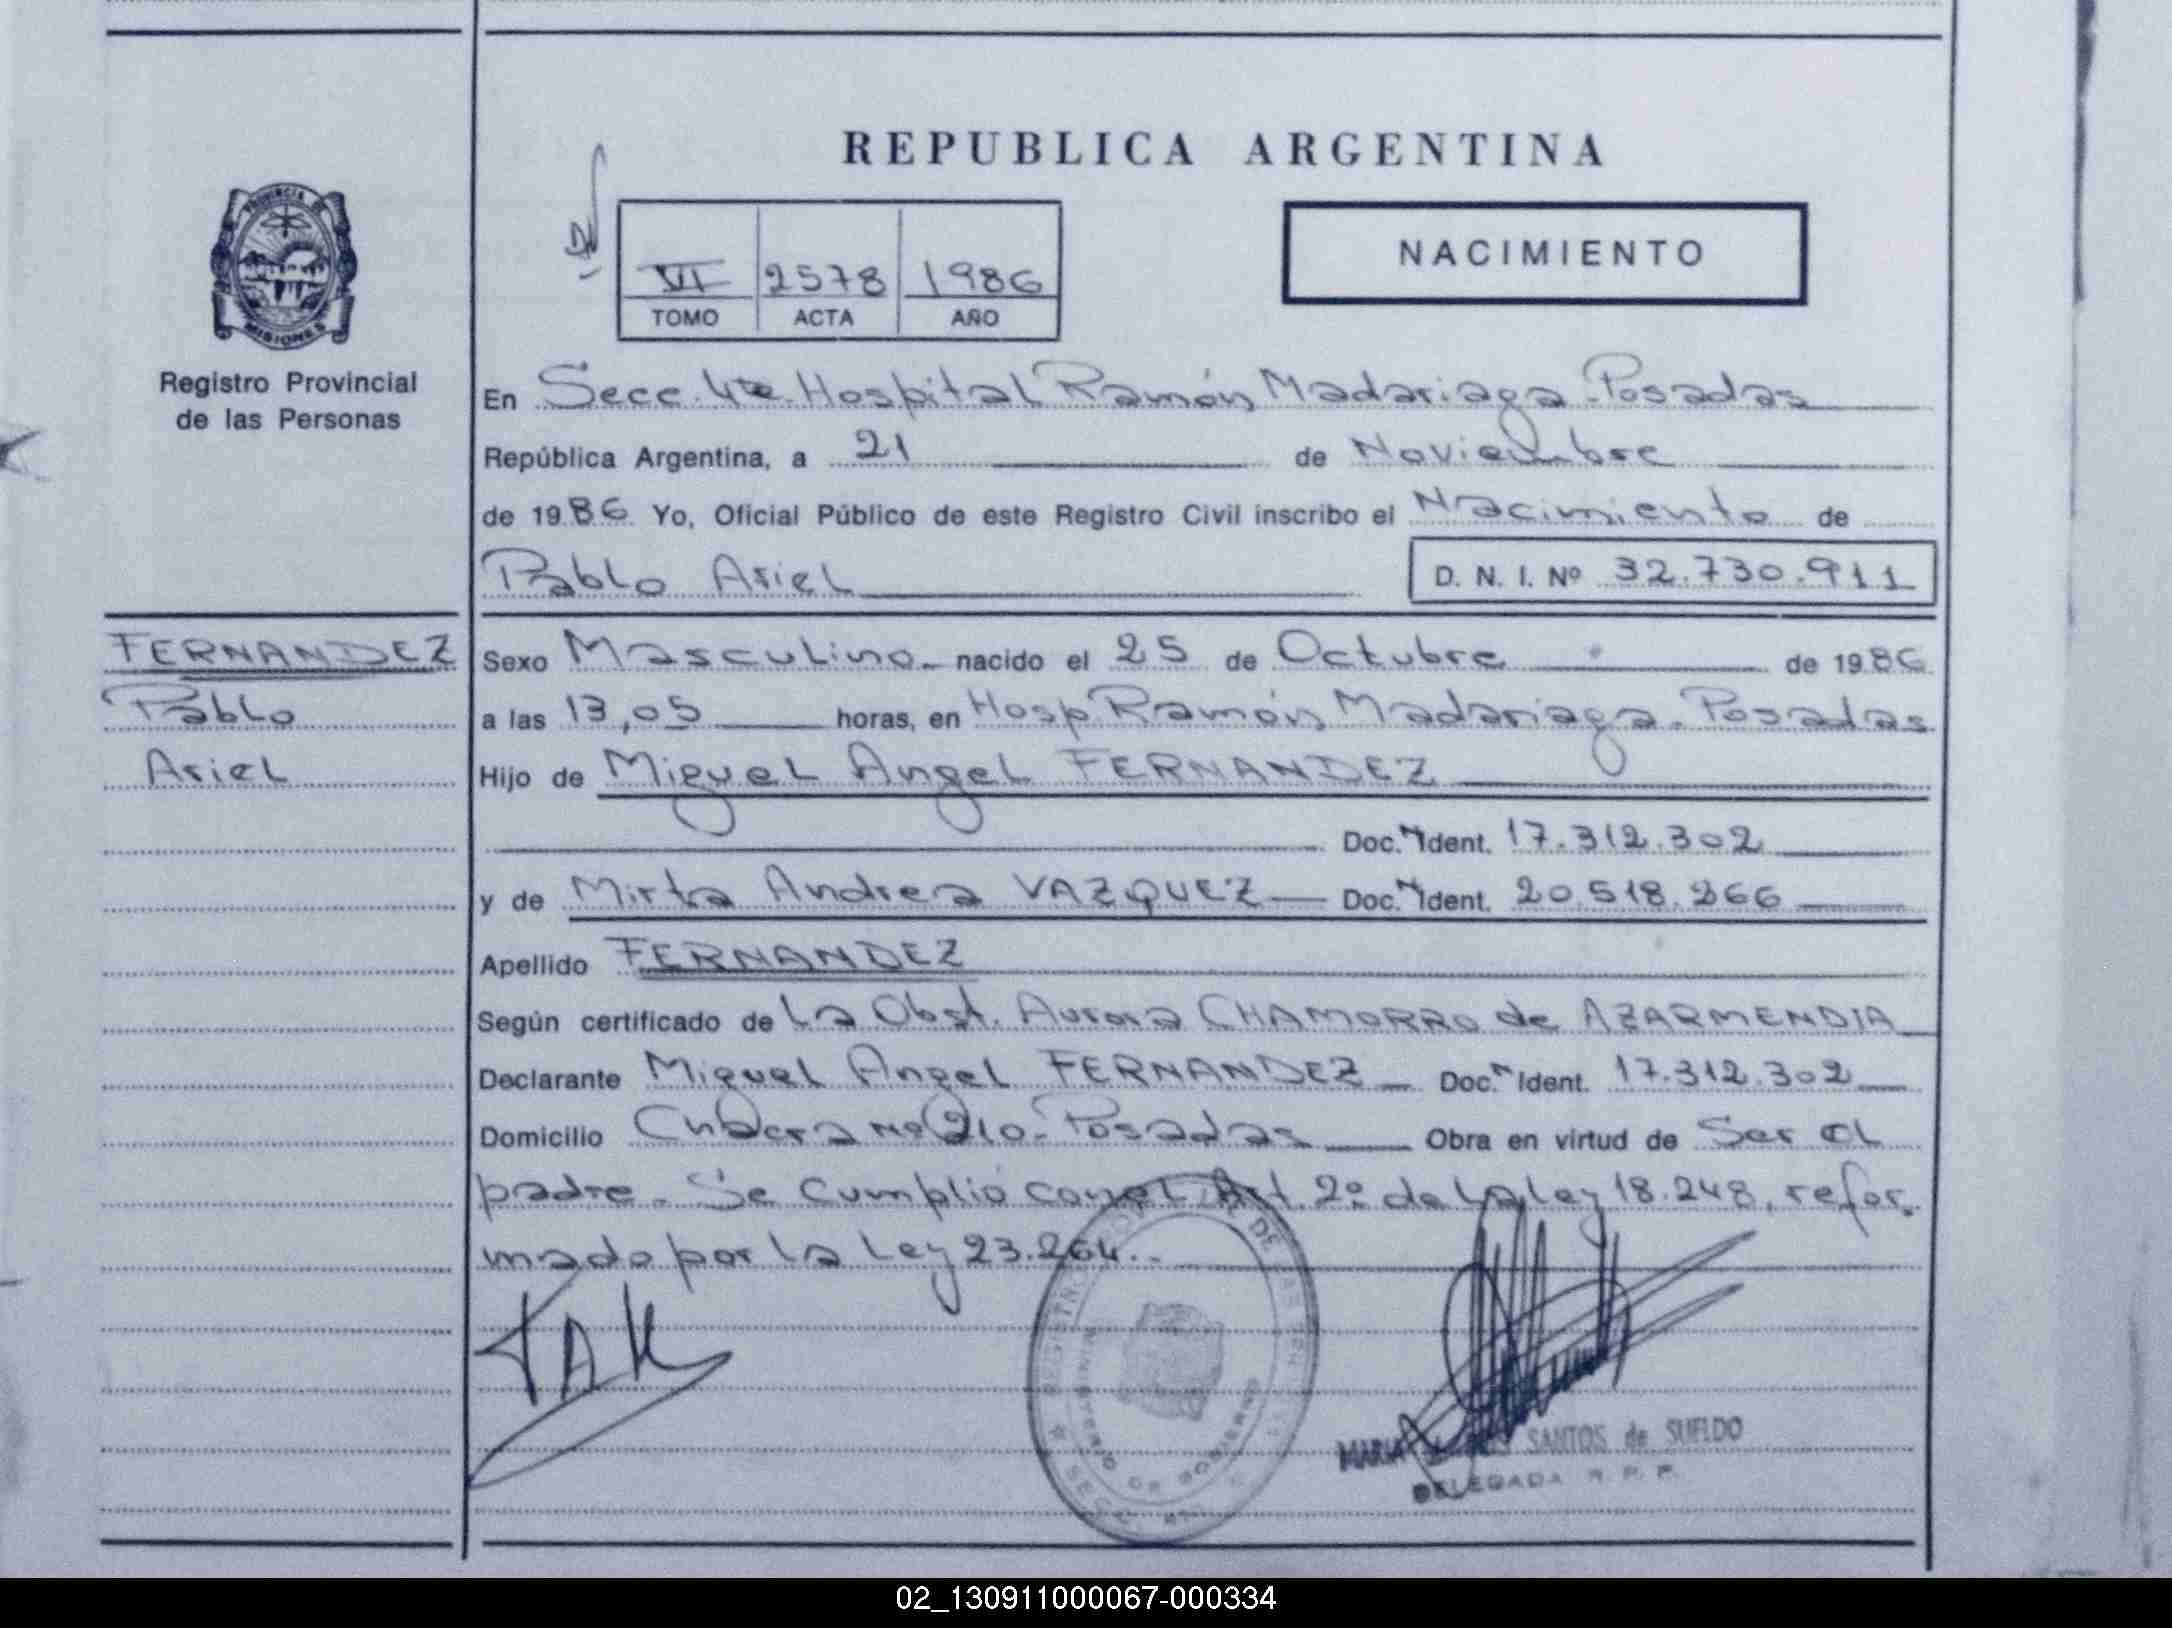 REPUBLICA ARGENTINA
NACIMIENTO
VI 2578 1986
TOMO ACTA AÑO
PROVINCIA DE
MISIONES
Registro Provincial
de las Personas
En Secc. 4ta. Hospital Ramón Madariaga - Posadas
República Argentina, a 21 de Noviembre
de 1986 Yo, Oficial Público de este Registro Civil inscribo el Nacimiento de
Pablo Ariel
D. N. I. Nº 32.730.911
FERNANDEZ
Pablo
Ariel
Sexo Masculino nacido el 25 de Octubre de 1986
a las 13,05 horas, en Hosp. Ramón Madariaga - Posadas
Hijo de Miguel Angel FERNANDEZ
Doc. N Ident. 17.312.302
y de Mirta Andrea VAZQUEZ Doc. N Ident. 20.518.266
Apellido FERNANDEZ
Según certificado de La Obst. Aurora CHAMORRO de AZARMENDIA
Declarante Miguel Angel FERNANDEZ Doc. N Ident. 17.312.302
Domicilio Chacra No 210 - Posadas Obra en virtud de Ser el
padre. Se cumplió con el Art. 2º de la Ley 18.248, refor-
mado por la Ley 23.264.-
MINISTERIO DE GOBIERNO
MARIA SANTOS de SUELDO
DELEGADA R. P. P.
02_130911000067-000334